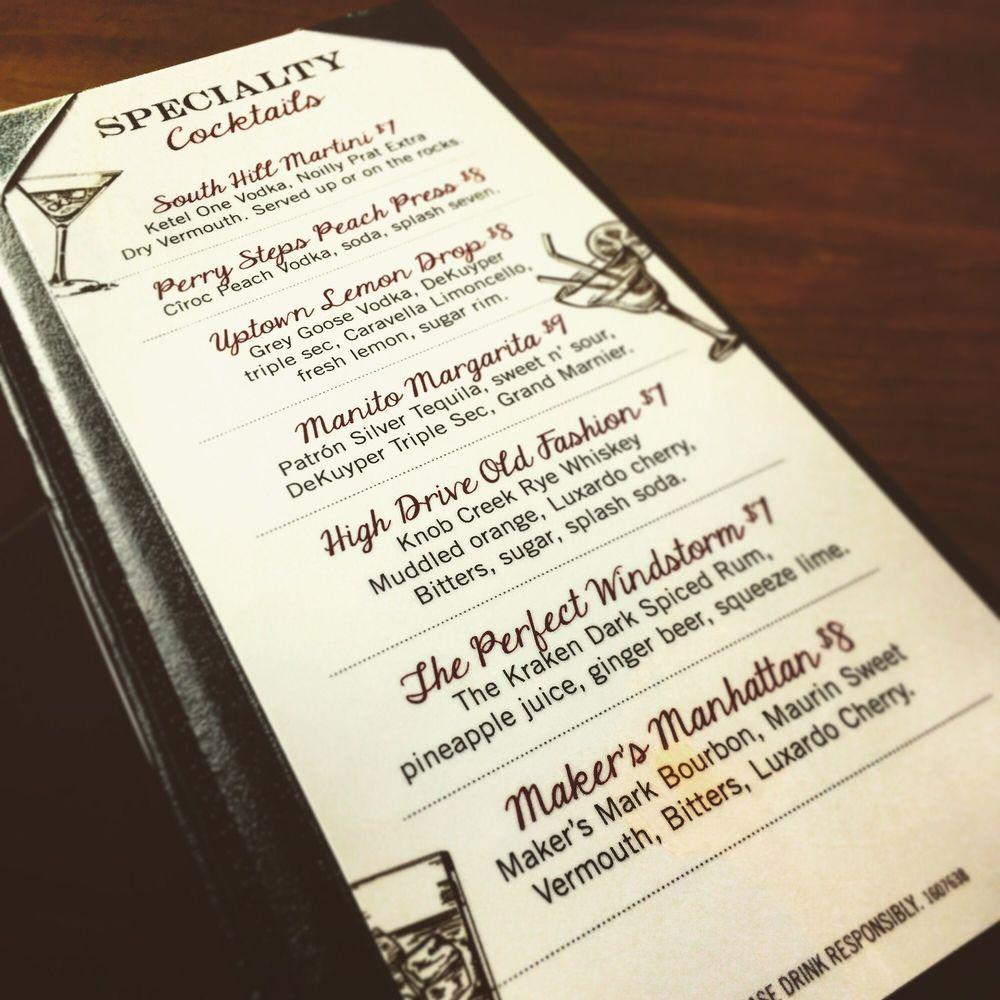 SPECIALTY
Cocktails
South Hill Martini $7
Ketel One Vodka, Noilly Prat Extra
Dry Vermouth. Served up or on the rocks.
Perry Steps Peach Press $8
Cîroc Peach Vodka, soda, splash seven.
Uptown Lemon Drop $8
Grey Goose Vodka, DeKuyper
triple sec, Caravella Limoncello,
fresh lemon, sugar rim.
Manito Margarita $9
Patrón Silver Tequila, sweet n' sour,
DeKuyper Triple Sec, Grand Marnier.
High Drive Old Fashion $7
Knob Creek Rye Whiskey
Muddled orange, Luxardo cherry,
Bitters, sugar, splash soda.
The Perfect Windstorm $7
The Kraken Dark Spiced Rum,
pineapple juice, ginger beer, squeeze lime.
Maker's Manhattan $8
Maker's Mark Bourbon, Maurin Sweet
Vermouth, Bitters, Luxardo Cherry.
ASE DRINK RESPONSIBLY. 1607638